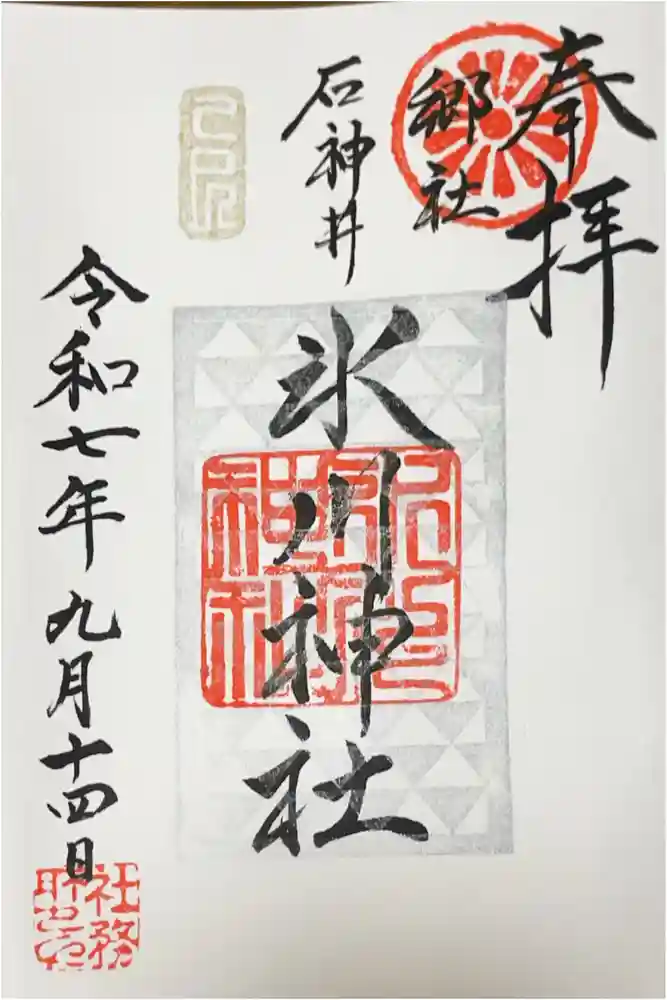 奉拝
郷社
石神井
氷川神社
令和七年九月十四日
社務